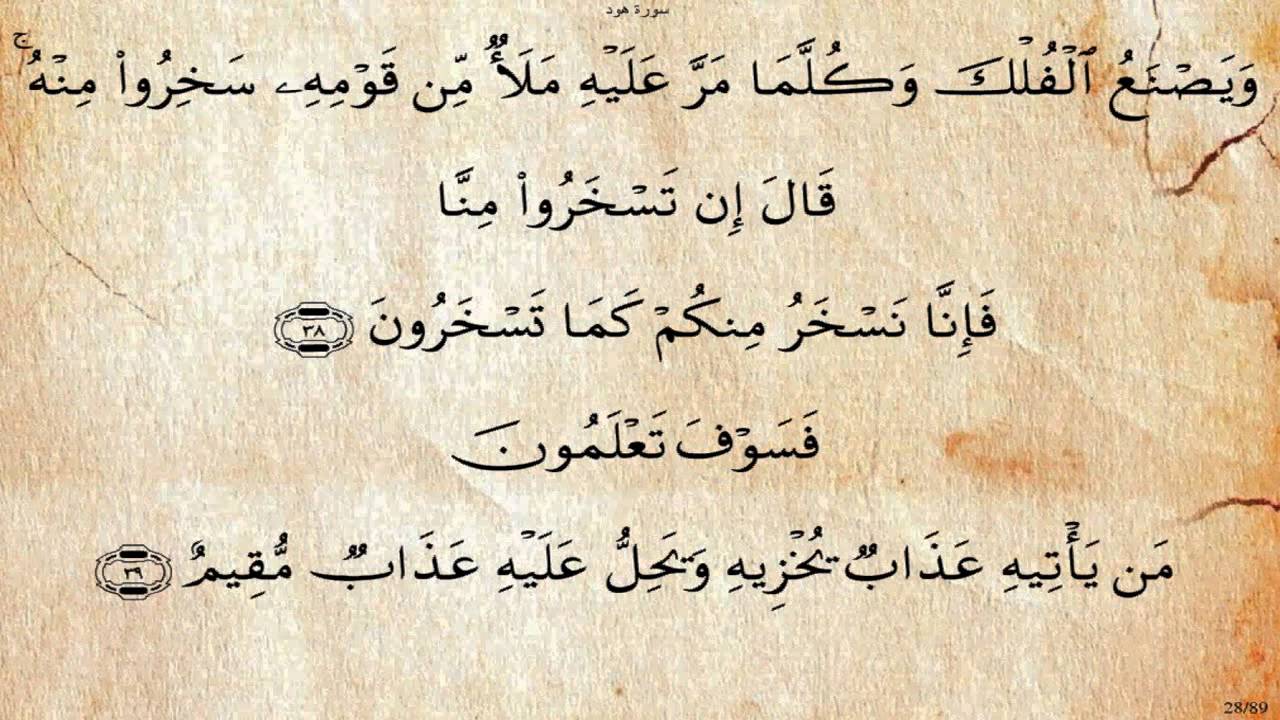 سورة هود
وَيَصْنَعُ ٱلْفُلْكَ وَكُلَّمَا مَرَّ عَلَيْهِ مَلَأٌ مِّن قَوْمِهِۦ سَخِرُوا۟ مِنْهُ ۚ
قَالَ إِن تَسْخَرُوا۟ مِنَّا
فَإِنَّا نَسْخَرُ مِنكُمْ كَمَا تَسْخَرُونَ ٣٨
فَسَوْفَ تَعْلَمُونَ
مَن يَأْتِيهِ عَذَابٌ يُخْزِيهِ وَيَحِلُّ عَلَيْهِ عَذَابٌ مُّقِيمٌ ٣٩
28/89